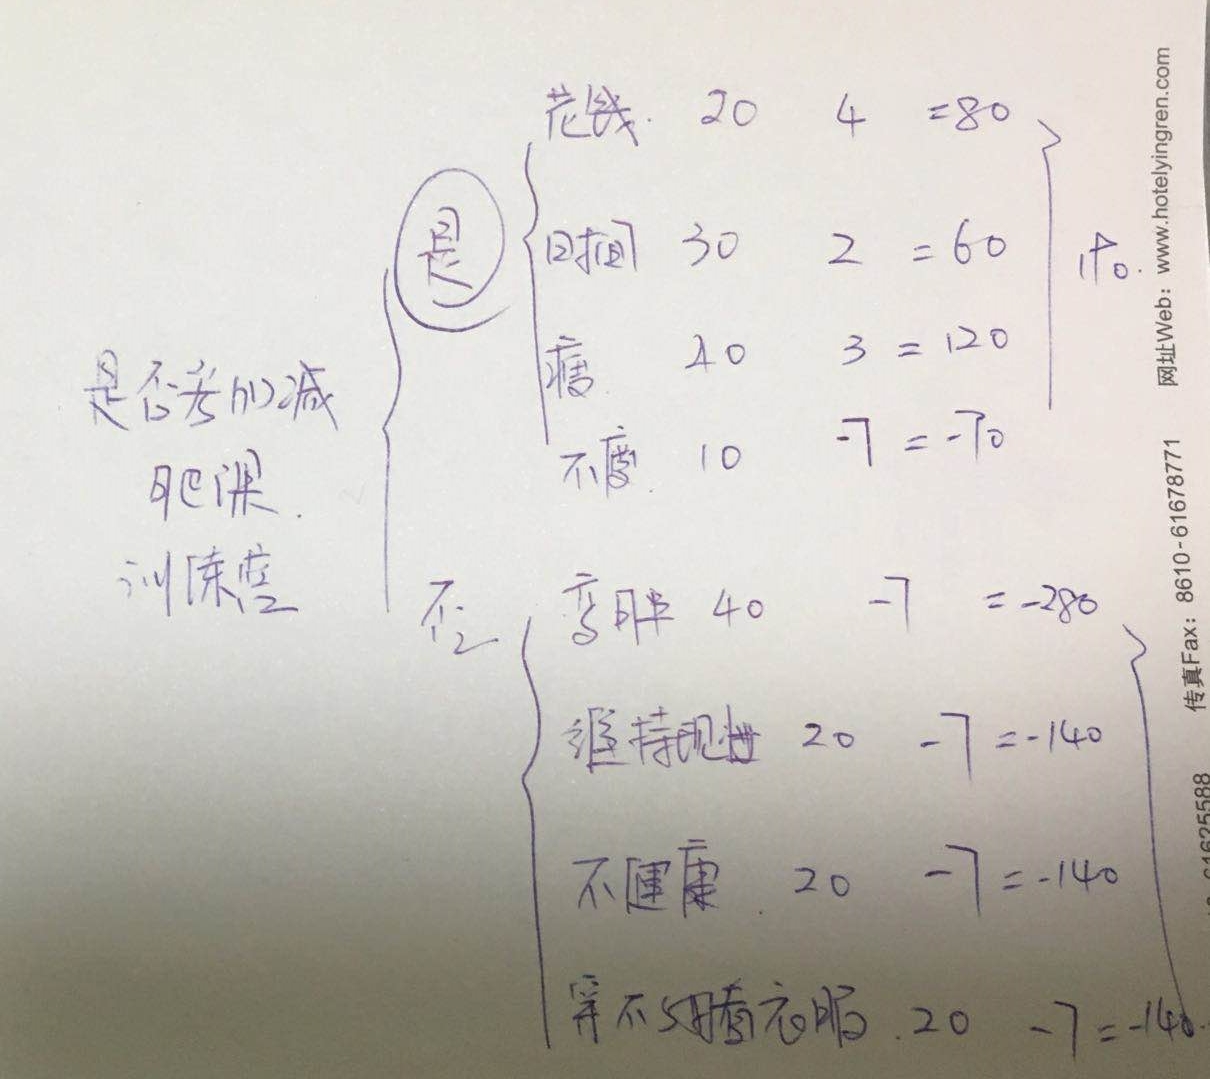 花钱. 20 4 =80
是
时间 30 2 =60
190.
瘦. 40 3 =120
是否参加减
不瘦. 10 -7 =-70
肥课.
训练营
否
变胖 40 -7 =-280
维持现状 20 -7 =-140
不健康. 20 -7 =-140
穿不 衣服. 20 -7 =-140
网址Web: www.hotelyingren.com
传真Fax: 8610-61678771
61625588